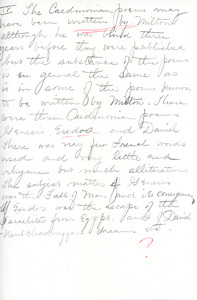 IV The Caedmonian poems may
have been written by Milton
although he was blind three
years before they were published
but the substance of the poems
is in general the same as
is in some of the poems known
to be written by Milton. There
were three Caedmonian poems
Genesis, Exodus and Daniel
There was very few French words
used and very little end
rhyme but much alliteration
The subject matter of Genesis
was the Fall of Man and its consequences
of Exodus was the escape of the
Israelites from Egypt. and of David
Nebuchadnezzar's dreams etc.
?